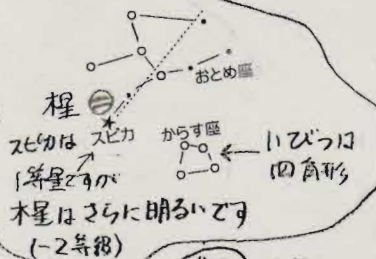 おとめ座
木星
スピカ
からす座
スピカは
1等星ですが
木星はさらに明るいです
(-2等級)
いびつな
四角形